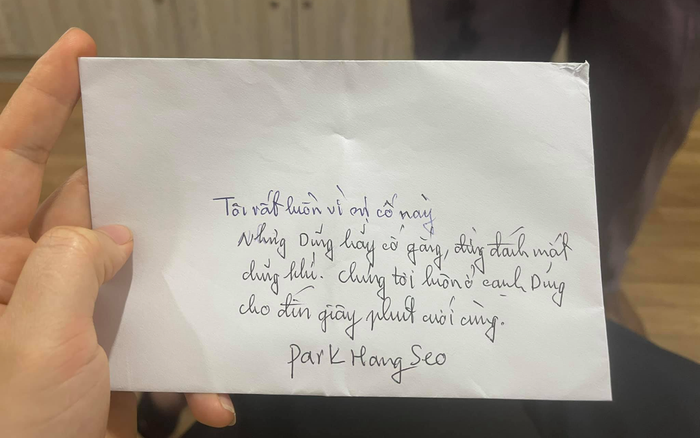 Tôi rất luôn vì sự cố này
Nhưng Dũng hãy cố gắng, đừng đánh mất
dũng khí. Chúng tôi luôn ở cạnh Dũng
cho đến giây phút cuối cùng.
Park Hang Seo